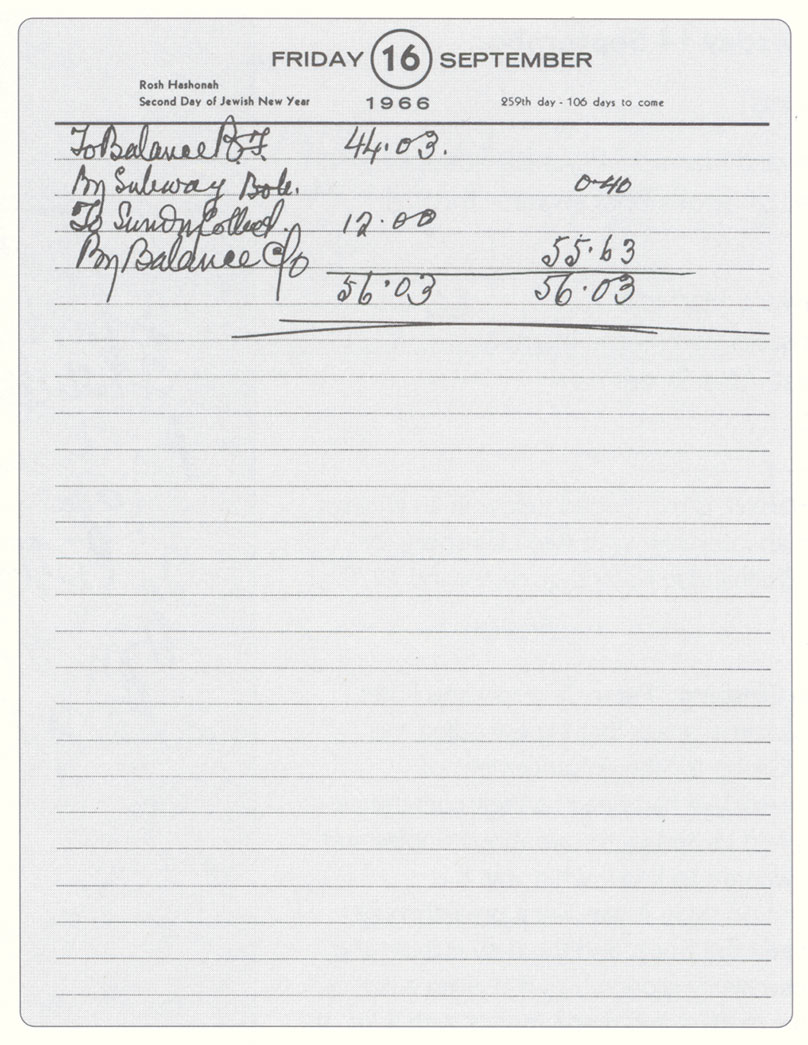 FRIDAY 16 SEPTEMBER
Rosh Hashonah
Second Day of Jewish New Year 1966 259th day - 106 days to come
To Balance B.F. 44.03.
By Subway 0.40
To Sundry Collect. 12.00
By Balance C/o 55.63
56.03 56.03